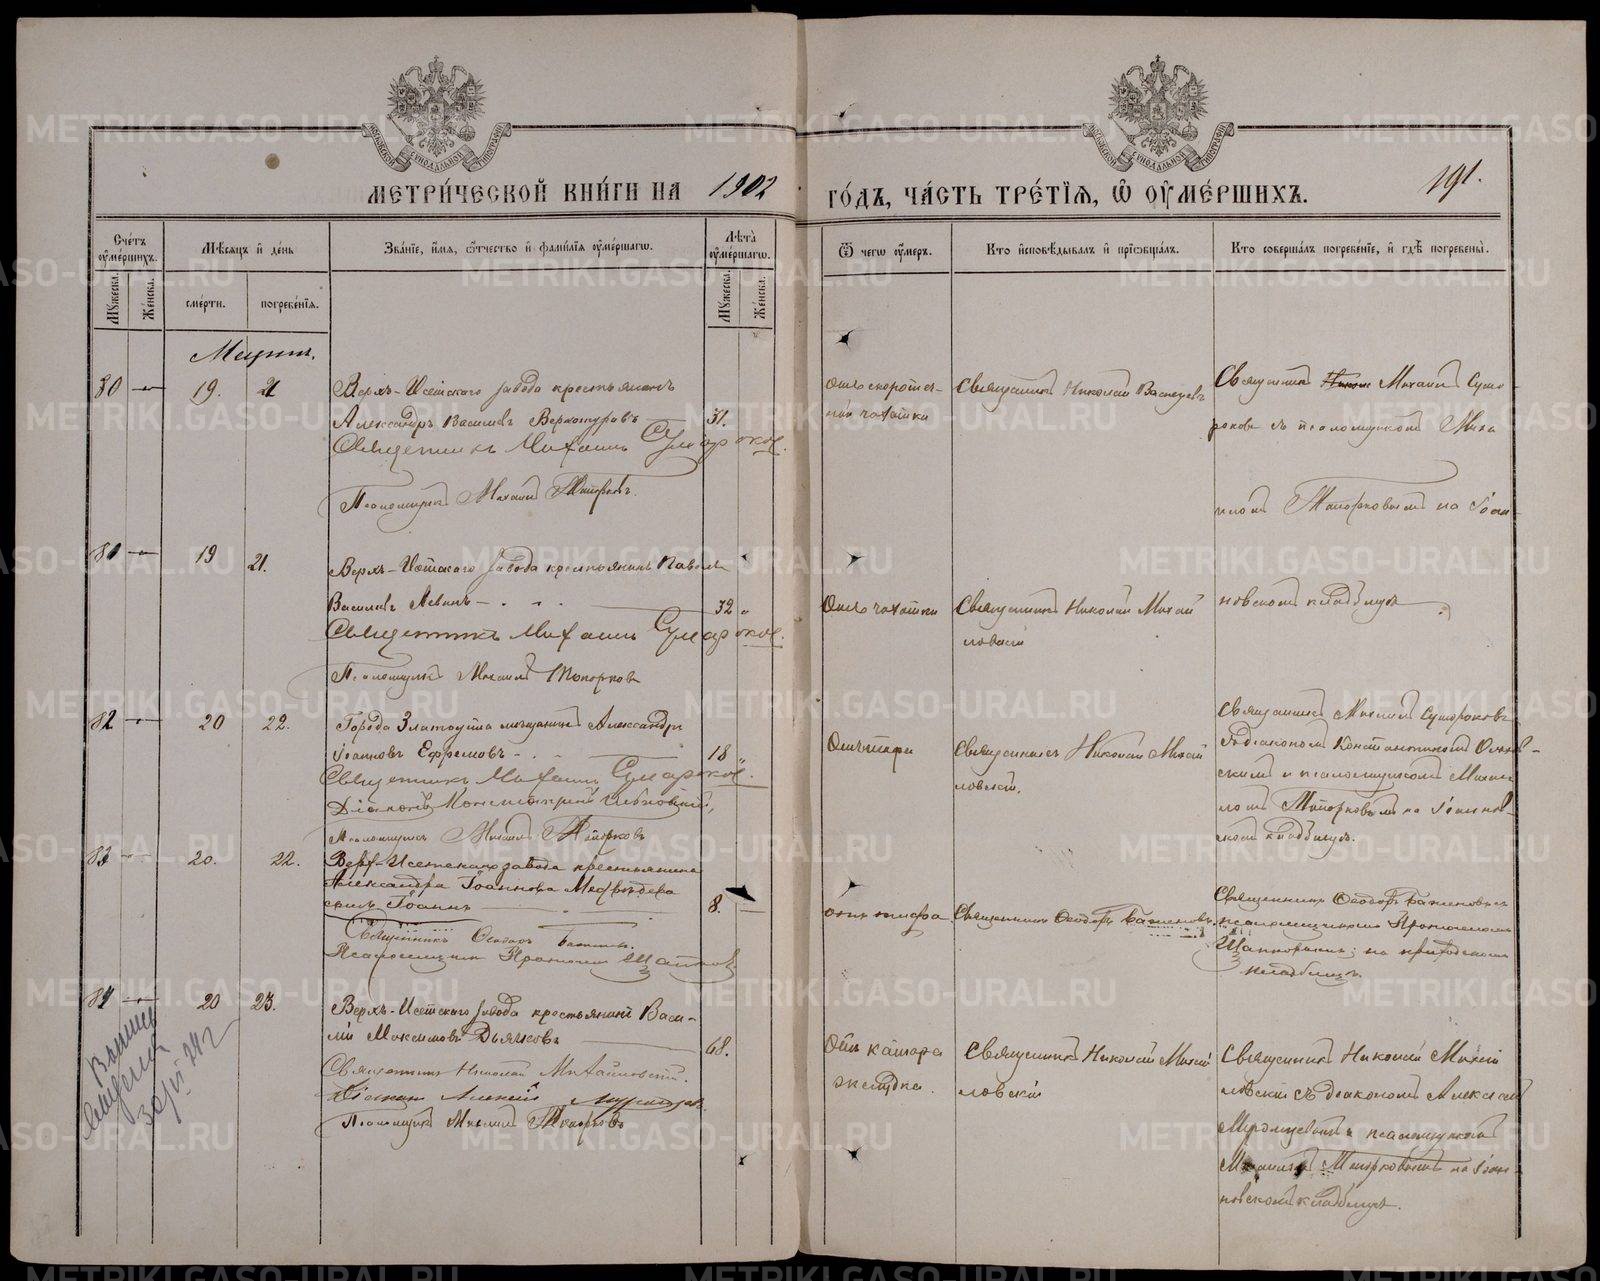 МЕТРИ́ЧЕСКОЙ КНИ́ГИ НА 1902 ГО́ДЪ, ЧА́СТЬ ТРЕ́ТІЯ, Ѽ ОУМЕ́РШИХЪ.
191.
Счетъ оумершихъ.
Мѣсяцъ и день
Званіе, имя, отчество и фамилія оумершагѡ.
Лѣта оумершагѡ.
Ѿ чегѡ оумеръ.
Кто исповѣдывалъ и пріобщалъ.
Кто совершалъ погребеніе, и гдѣ погребены.
Мужеска.
Женска.
смерти.
погребенія.
Мужеска.
Женска.
Мартъ.
80 — 19. 21
Верхъ-Исетскаго завода крестьянинъ
Александръ Васильевъ Верхотуровъ
31.
Священникъ Михаилъ Сумароковъ.
Псаломщикъ Михаилъ Топорковъ.
отъ скоротеч-
ной чахотки
Священникъ Николай
Священникъ Михаилъ Сума-
роковъ съ псаломщикомъ Миха
иломъ Топорковымъ на Іоан-
новскомъ кладбищѣ
81 — 19 21.
Верхъ-Исетскаго завода крестьянинъ Павелъ
Васильевъ
32 "
Священникъ Михаилъ Сумароковъ.
Псаломщикъ Михаилъ Топорковъ
Отъ чахотки
Священникъ Николай Михай
ловскій
82 — 20 22.
Города Златоуста мѣщанинъ Александръ
Іоанновъ Ефремовъ
18 "
Священникъ Михаилъ Сумароковъ.
Діаконъ
Псаломщикъ Михаилъ Топорковъ
Священникъ Николай Михай
ловскій.
Священникъ Михаилъ Сумароковъ
съ діакономъ Константиномъ
скимъ и псаломщикомъ Михаи
ломъ Топорковымъ на Іоаннов-
скомъ кладбищѣ.
83 — 20. 22.
Верх-Исетскаго завода крестьянина
Александра Іоаннова Медвѣдева
сынъ Іоаннъ
8. —
Священникъ Ѳеодоръ Баженовъ.
Псаломщикъ Шапковъ
отъ тифа
Священникъ Ѳеодоръ Баженовъ
Священникъ Ѳеодоръ Баженовъ съ
псаломщикомъ
на приходскомъ
кладбищѣ
84 — 20 23.
Верхъ-Исетскаго завода крестьянинъ Васи-
лій Максимовъ Дьячковъ
68.
Священникъ Николай Михайловскій.
Діаконъ Алексій
Псаломщикъ Михаилъ Топорковъ
Отъ катарра
желудка.
Священникъ Николай Михай
ловскій
Священникъ Николай Михай
ловскій съ діакономъ Алексѣемъ
псаломщикомъ
Михаиломъ Топорковымъ на Іоан-
новскомъ кладбищѣ.
METRIKI.GASO-URAL.RU